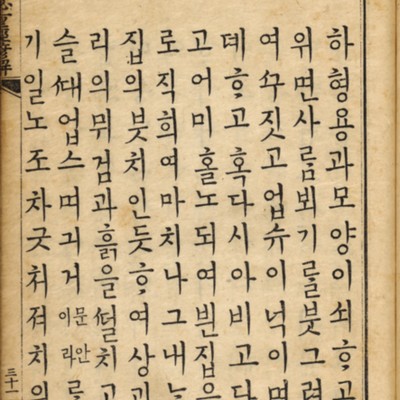 하형용과모양이쇠ᄒᆞ고
위면사ᄅᆞᆷ뵈기ᄅᆞᆯ붓그려
여ᄭᅮ짓고업슈이넉이며
뎨ᄒᆞ고혹다시아비고다
고어미홀노되여뷘집을
로직희여마치나그내
집의븟치인듯ᄒᆞ여상괴
리의뮈검과흙을ᄯᅥᆯ치고
슬ᄯᅢ업스며긔거문안이라
기일노조차긋처져치의
解
三十一